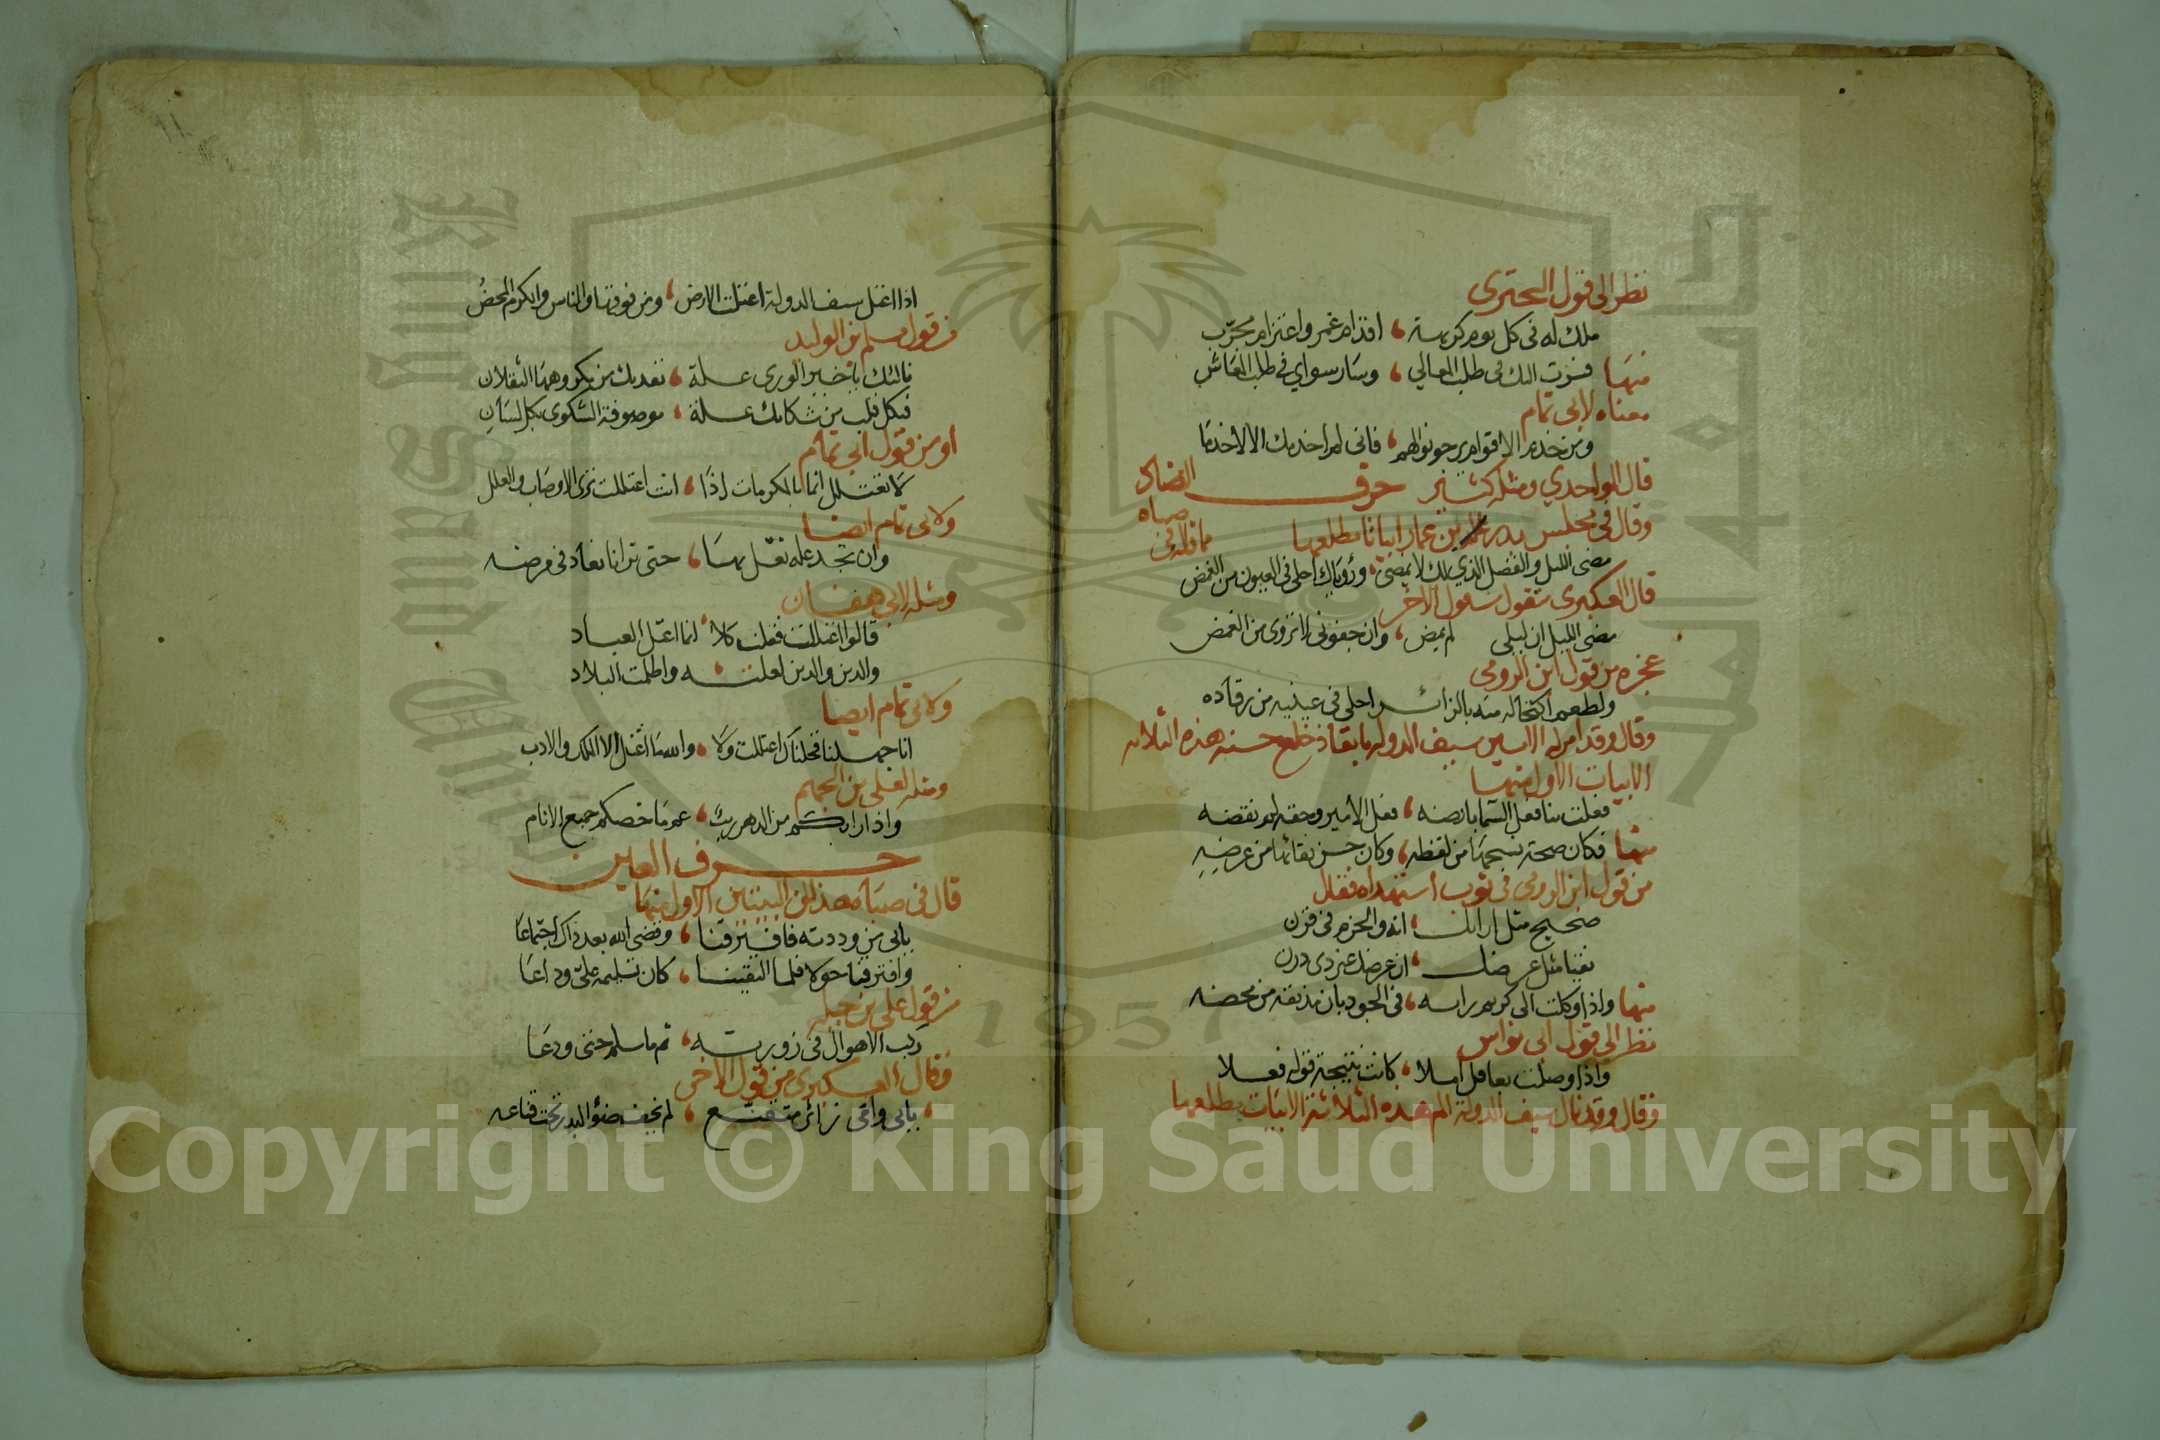 نظر الى قول البحترى
ملك له فى كل يوم كريهة ، اقدام غمر واعتزام مجرّب
منها فسرت اليك فى طلب المعالي ، وسار سواي في طلب المعاش
معناه لابى تمام
ومن خدم الاقوام يرجو نوالهم ، فانى لم اخدمك الا لاخدما
قال الواحدي ومثله كثير حرف الضاد
مما قاله فى صباه
وقال فى مجلس بدر بن عمار ابياتا مطلعها
مضى الليل والفضل الذي لك لا يمضى ، ورؤياك احلى فى العيون من الغمض
قال العكبرى منقول من قول الاخر
مضى الليل ان ليلى لم يمض ، وان جفونى لا تروى من الغمض
عجزه من قول ابن الرومى
ولطعم اكتحاله منه بالزائـر احلى فى عينيه من رقاده
وقال وقد امر له الامير سيف الدوله بانقاذ خلع حسنه هذه الثلاثه
الابيات الاول منها
فعلت بنا فعل السما بارضه ، فعل الامير وحقه لم نقضه
منها فكان صحة نسجها من لفظه ، وكان حسن نقائها من عرضه
من قول ابن الرومى فى ثوب استهداه فقال
صحيح مثل ارائك ، انه والحزم فى قرن
نقيا مثل عرضك ، ان عرضك غير ذى درن
منها واذا وكلت الى كريم رايه ، فى الجود بان مذيقه من محضه
نظر الى قول ابى نواس
واذا وصلت بعاقل املا ، كانت نتيجة قوله فعلا
وقال وقد نال سيف الدولة الم هذه الثلاثة الابيات مطلعها
اذا اعتل سيف الدولة اعتلت الارض ، ومن فوقها والناس والكرم المحضُ
من قول مسلم بن الوليد
نالتك يا خير الورى عـلة ، نفديك من مكروهها الثقلان
فبكل قلب من شكاتك عـلة ، موصوفة الشكوى بكل لسان
او من قول ابى تمام
لا تعتلل انما بالمكرمات اذا ، انت اعتللت ترى الاوصاب والعلل
ولابى تمام ايضا
وان تجد عله نغـل بهـا ، حتى ترانا نعاد فى مرضه
ومثله لابى هفـان
قالوا اعتللت فقلت كلا ، انما اعتل العباد
والدين والدين لعلتـه ، واظلمت البلاد
ولابى تمام ايضا
انا جهلنا فخلناك اعتللت ولا ، والله ما اعتل الا الملك والادب
ومثله لعلى بن الجهم
واذا رابـكـم من الدهر ريب ، عم ما خصكم جميع الانام
حـرف العين
قال فى صباه هذين البيتين الاول منها
بابى من وددته فافـترقنا ، وقضى الله بعد ذاك اجتماعا
وافترقنا حولا فلما التقينـا ، كان تسليمه علىّ وداعا
من قول على بن جبله
ركب الاهوال فى زورتـه ، ثم ما سلم حتى ودعا
وقال العـكبرى من قول الاخر
بابى وامى زائر متقنّـع ، لم يخف ضؤ البدر تحت قناعه
Copyright © King Saud University
1957